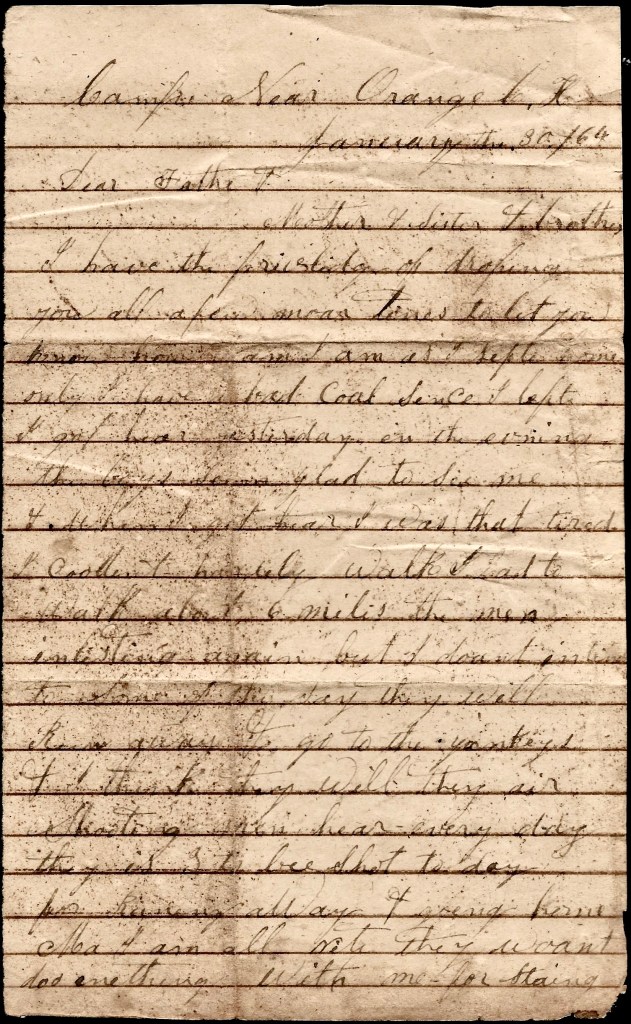 Camp Near Orange C. H
January the 30/64
Dear Father &
Mother & Sister & brother
I have the privelidge of droping
you all a few moar lines to let you
know how I am I am as I left home
only I have a bad Coal Sence I left
I got hear yesterday en the evning
the boys Seem glad to See me
& When I got hear I was that tired
I coodent harely walk I had to
walk about 6 miles the men
intisting again but I doant inten
to Some of the say they will
Run away to go to the yankeys
& I think they will they air
Shooting men hear every day
they is 3 to bee Shot to day
for Runing away & going home
Ma I am all rite they woant
doo enething With me for Staing